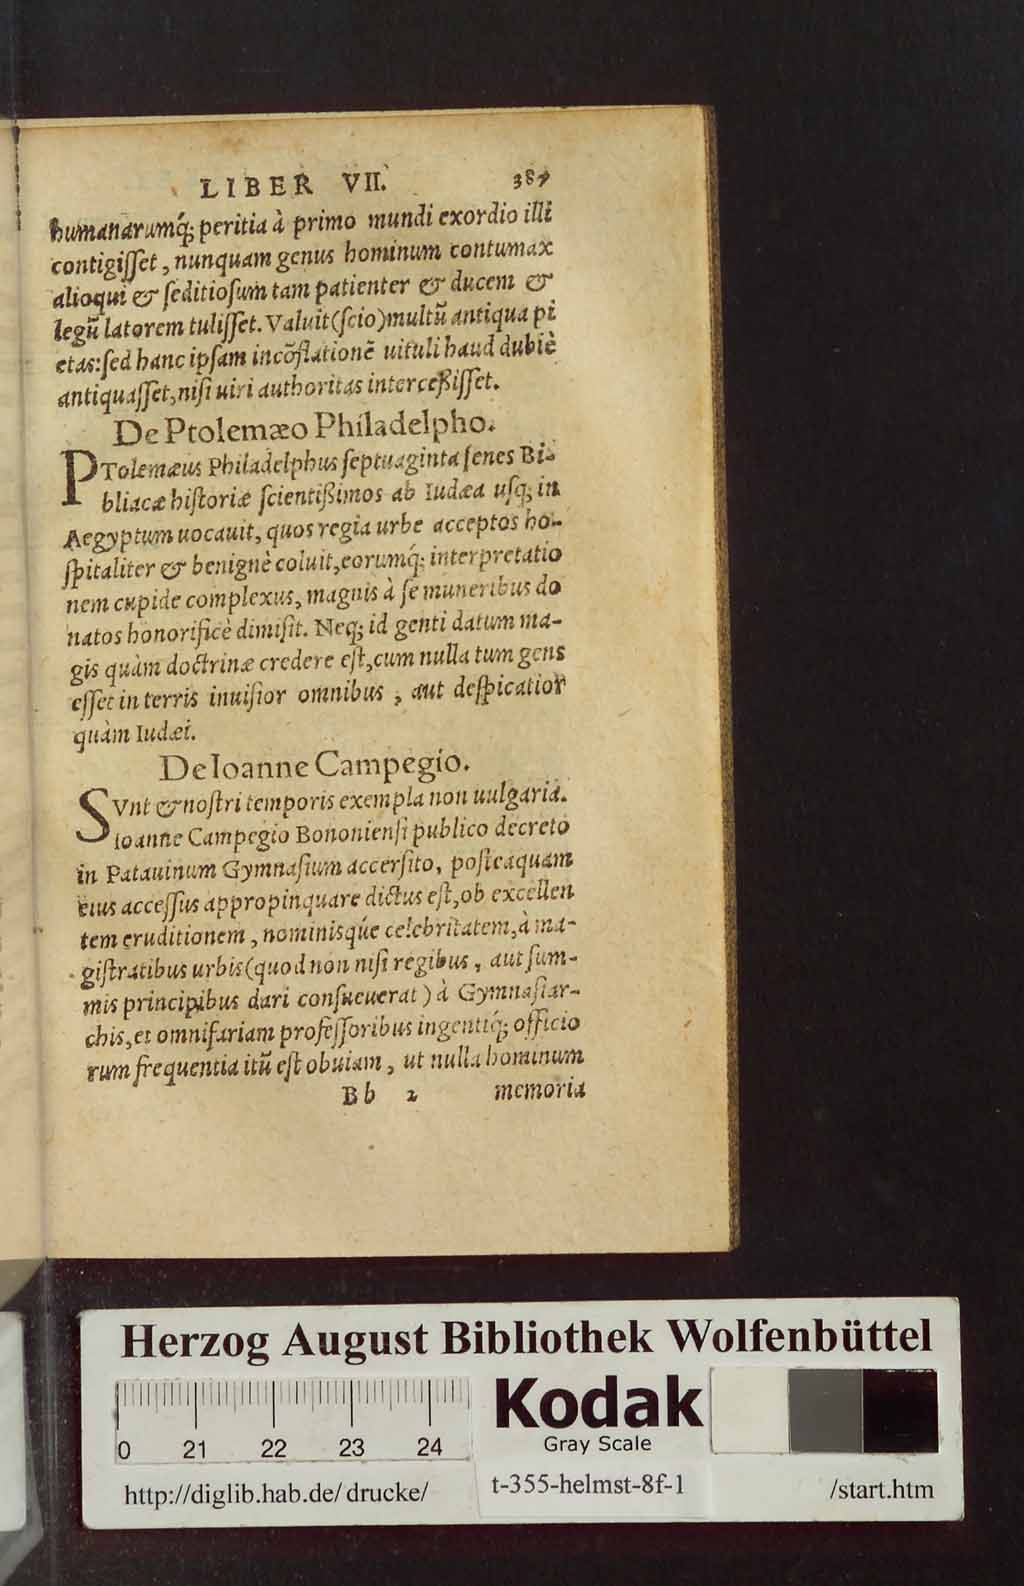 LIBER VII. 387
humanarumq́; peritia à primo mundi exordio illi
contigiſſet, nunquam genus hominum contumax
alioqui & ſeditioſum tam patienter & ducem &
legũ latorem tuliſſet. Valuit (ſcio) multũ antiqua pi
etas: ſed hanc ipſam incõflationẽ uituli haud dubiè
antiquaſſet, niſi uiri authoritas interceßiſſet.
De Ptolemæo Philadelpho.
PTolemæus Philadelphus ſeptuaginta ſenes Bi-
bliacæ hiſtoriæ ſcientißimos ab Iudæa uſq; in
Aegyptum uocauit, quos regia urbe acceptos ho-
ſpitaliter & benignè coluit, eorumq́; interpretatio
nem cupide complexus, magnis à ſe muneribus do
natos honorificè dimiſit. Neq; id genti datum ma-
gis quàm doctrinæ credere eſt, cum nulla tum gens
eſſet in terris inuiſior omnibus, aut deſpicatior
quàm Iudæi.
De Ioanne Campegio.
SVnt & noſtri temporis exempla non uulgaria.
Ioanne Campegio Bononienſi publico decreto
in Patauinum Gymnaſium accerſito, poſteaquam
eius acceſſus appropinquare dictus eſt, ob excellen
tem eruditionem, nominisqúe celebritatem, à ma-
giſtratibus urbis (quod non niſi regibus, aut ſum-
mis principibus dari conſueuerat) à Gymnaſiar-
chis, et omnifariam profeſſoribus ingentiq́; officio
rum frequentia itũ eſt obuiam, ut nulla hominum
Bb 2 memoria
Herzog August Bibliothek Wolfenbüttel
0 21 22 23 24
Kodak
Gray Scale
http://diglib.hab.de/drucke/ t-355-helmst-8f-1 /start.htm